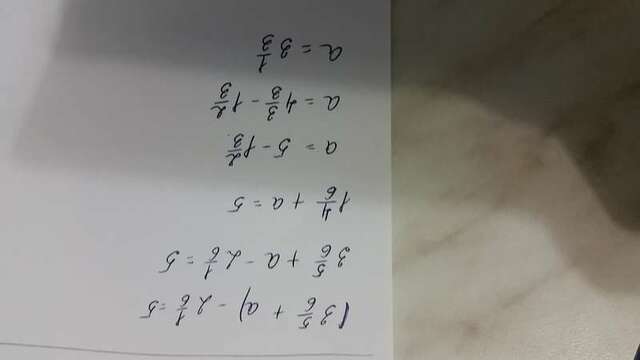 (3 5/6 + a) - 2 1/6 = 5
3 5/6 + a - 2 1/6 = 5
1 4/6 + a = 5
a = 5 - 1 2/3
a = 4 3/3 - 1 2/3
a = 3 1/3